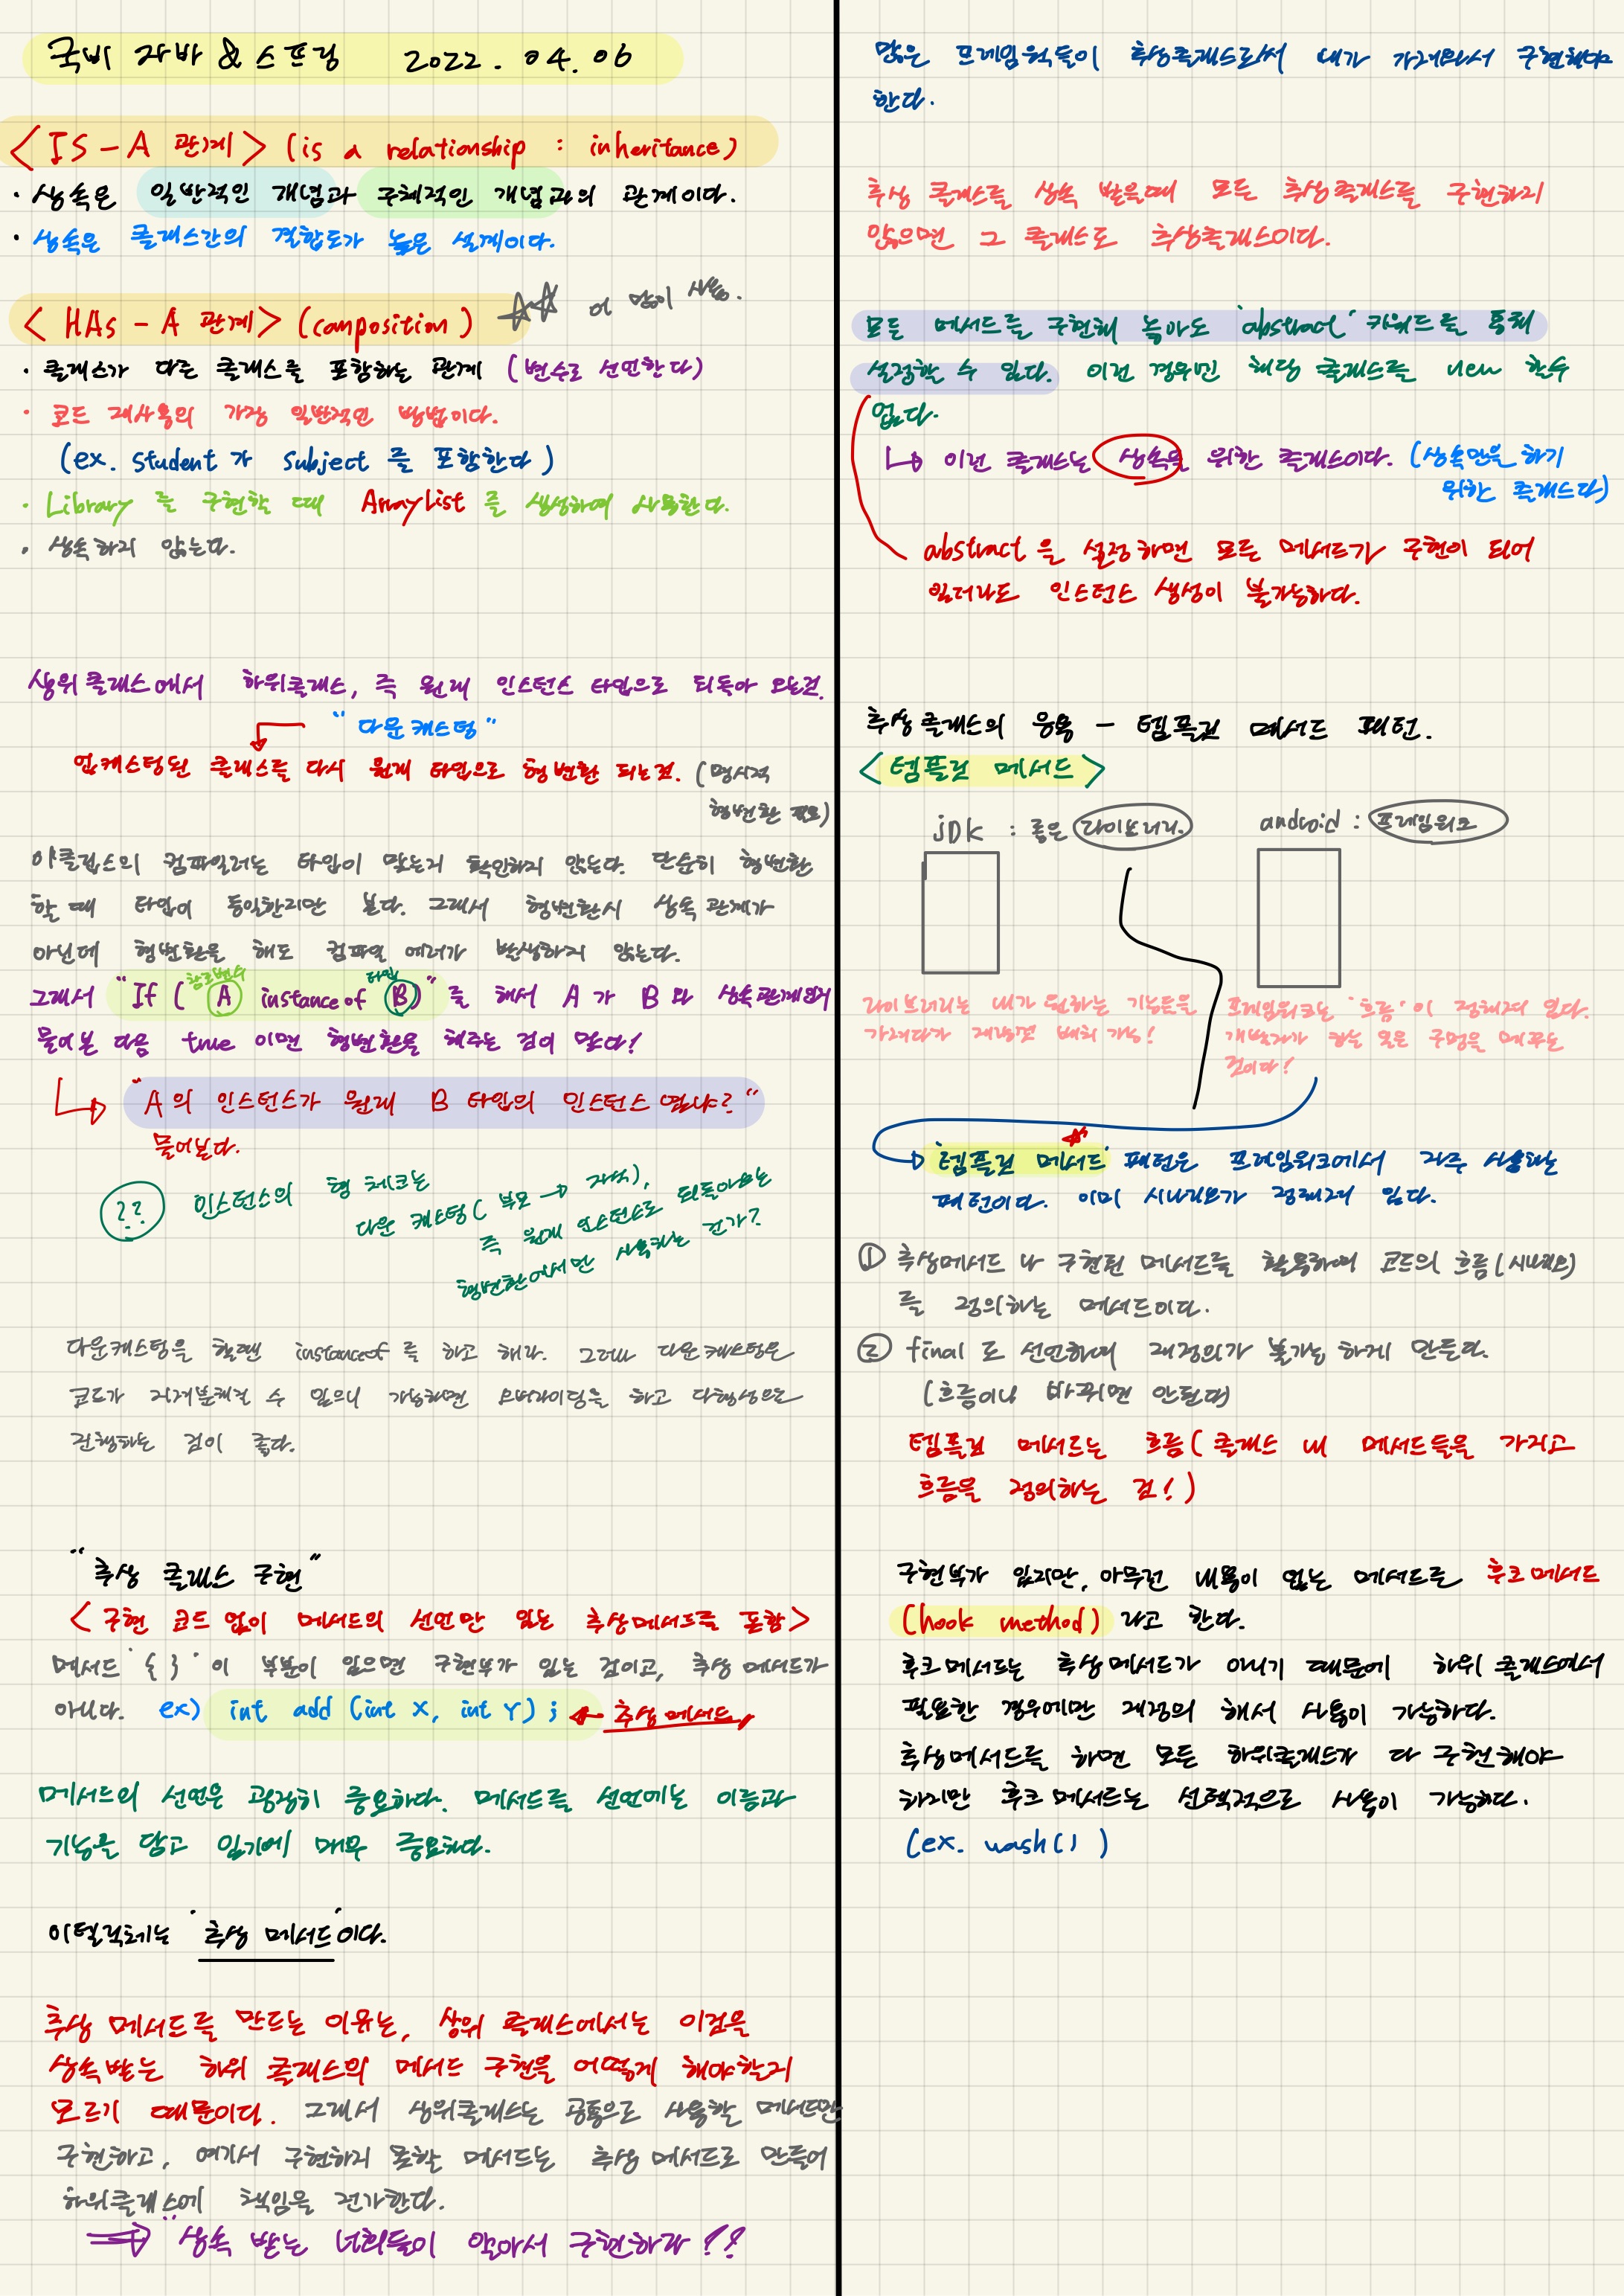 국비 자바 & 스프링 2022.04.06
<IS-A 관계> (is a relationship : inheritance)
· 상속은 일반적인 개념과 구체적인 개념과의 관계이다.
· 상속은 클래스간의 결합도가 높은 설계이다.
<HAS-A 관계> (composition) ☆☆ 더 많이 사용.
· 클래스가 다른 클래스를 포함하는 관계 (변수로 선언한다)
· 코드 재사용의 가장 일반적인 방법이다.
(ex. student 가 subject 를 포함한다)
· Library 를 구현할 때 ArrayList 를 생성하여 사용한다.
· 상속하지 않는다.
상위클래스에서 하위클래스, 즉 원래 인스턴스 타입으로 되돌아 오는것.
"다운 캐스팅"
업캐스팅된 클래스를 다시 원래 타입으로 형변환 되는것. (명시적
형변환 필요)
이클립스의 컴파일러는 타입이 맞는지 확인하지 않는다. 단순히 형변환
할 때 타입이 동일한지만 본다. 그래서 형변환시 상속 관계가
아닌데 형변환을 해도 컴파일 에러가 발생하지 않는다.
참조변수 타입
그래서 "If ( A instance of B)" 를 해서 A 가 B 와 상속관계인지
물어본 다음 true 이면 형변환을 해주는 것이 맞다!
"A의 인스턴스가 원래 B 타입의 인스턴스 였냐?"
물어본다.
?? 인스턴스의 형 체크는
다운 캐스팅( 부모 → 자식),
즉 원래 인스턴스로 되돌아오는
형변환에서만 사용하는 건가?
다운캐스팅을 할땐 instanceof 를 하고 해라. 그러나 다운캐스팅은
코드가 지저분해질 수 있으니 가능하면 오버라이딩을 하고 다형성으로
진행하는 것이 좋다.
"추상 클래스 구현"
<구현 코드 없이 메서드의 선언만 있는 추상메서드를 포함>
메서드 '{ }' 이 부분이 있으면 구현부가 있는 것이고, 추상 메서드가
아니다. ex) int add (int X, int Y) ; ← 추상 메서드
메서드의 선언은 굉장히 중요하다. 메서드를 선언에는 이름과
기능을 담고 있기에 매우 중요하다.
이탤릭체는 '추상 메서드'이다.
추상 메서드를 만드는 이유는, 상위 클래스에서는 이것을
상속받는 하위 클래스의 메서드 구현을 어떻게 해야할지
모르기 때문이다. 그래서 상위클래스는 공통으로 사용할 메서드만
구현하고, 여기서 구현하지 못할 메서드는 추상 메서드로 만들어
하위클래스에 책임을 전가한다.
⇒ "상속 받는 너희들이 알아서 구현하라!!
많은 프레임웍들이 추상클래스로써 내가 가져와서 구현해야
한다.
추상 클래스를 상속 받을때 모든 추상클래스를 구현하지
않으면 그 클래스도 추상클래스이다.
모든 메서드를 구현해 놓아도 'abstract' 키워드를 통해
설정할 수 있다. 이런 경우엔 해당 클래스를 new 할수
없다.
↳ 이런 클래스는 상속을 위한 클래스이다. (상속만을 하기
위한 클래스다)
abstract 을 설정하면 모든 메서드가 구현이 되어
있더라도 인스턴스 생성이 불가능하다.
추상 클래스의 응용 - 템플릿 메서드 패턴.
<템플릿 메서드>
jDK : 좋은 라이브러리. android : 프레임워크
라이브러리는 내가 원하는 기능들을
가져다가 재량껏 배치 가능!
프레임워크는 '흐름'이 정해져 있다.
개발자가 하는 일은 구멍을 메꾸는
것이다!
'템플릿 메서드' 패턴은 프레임워크에서 자주 사용하는
패턴이다. 이미 시나리오가 정해져 있다.
① 추상메서드 나 구현된 메서드를 활용하여 코드의 흐름(시나리오)
를 정의하는 메서드이다.
② final 로 선언하여 재정의가 불가능 하게 만든다.
(흐름이니 바뀌면 안된다)
템플릿 메서드는 흐름( 클래스 내 메서드들을 가지고
흐름을 정의하는 것!)
구현부가 있지만, 아무런 내용이 없는 메서드를 후크 메서드
(hook method) 라고 한다.
후크 메서드는 추상메서드가 아니기 때문에 하위 클래스에서
필요한 경우에만 재정의 해서 사용이 가능하다.
추상메서드를 하면 모든 하위클래스가 다 구현해야
하지만 후크 메서드는 선택적으로 사용이 가능하다.
(ex. wash( ) )